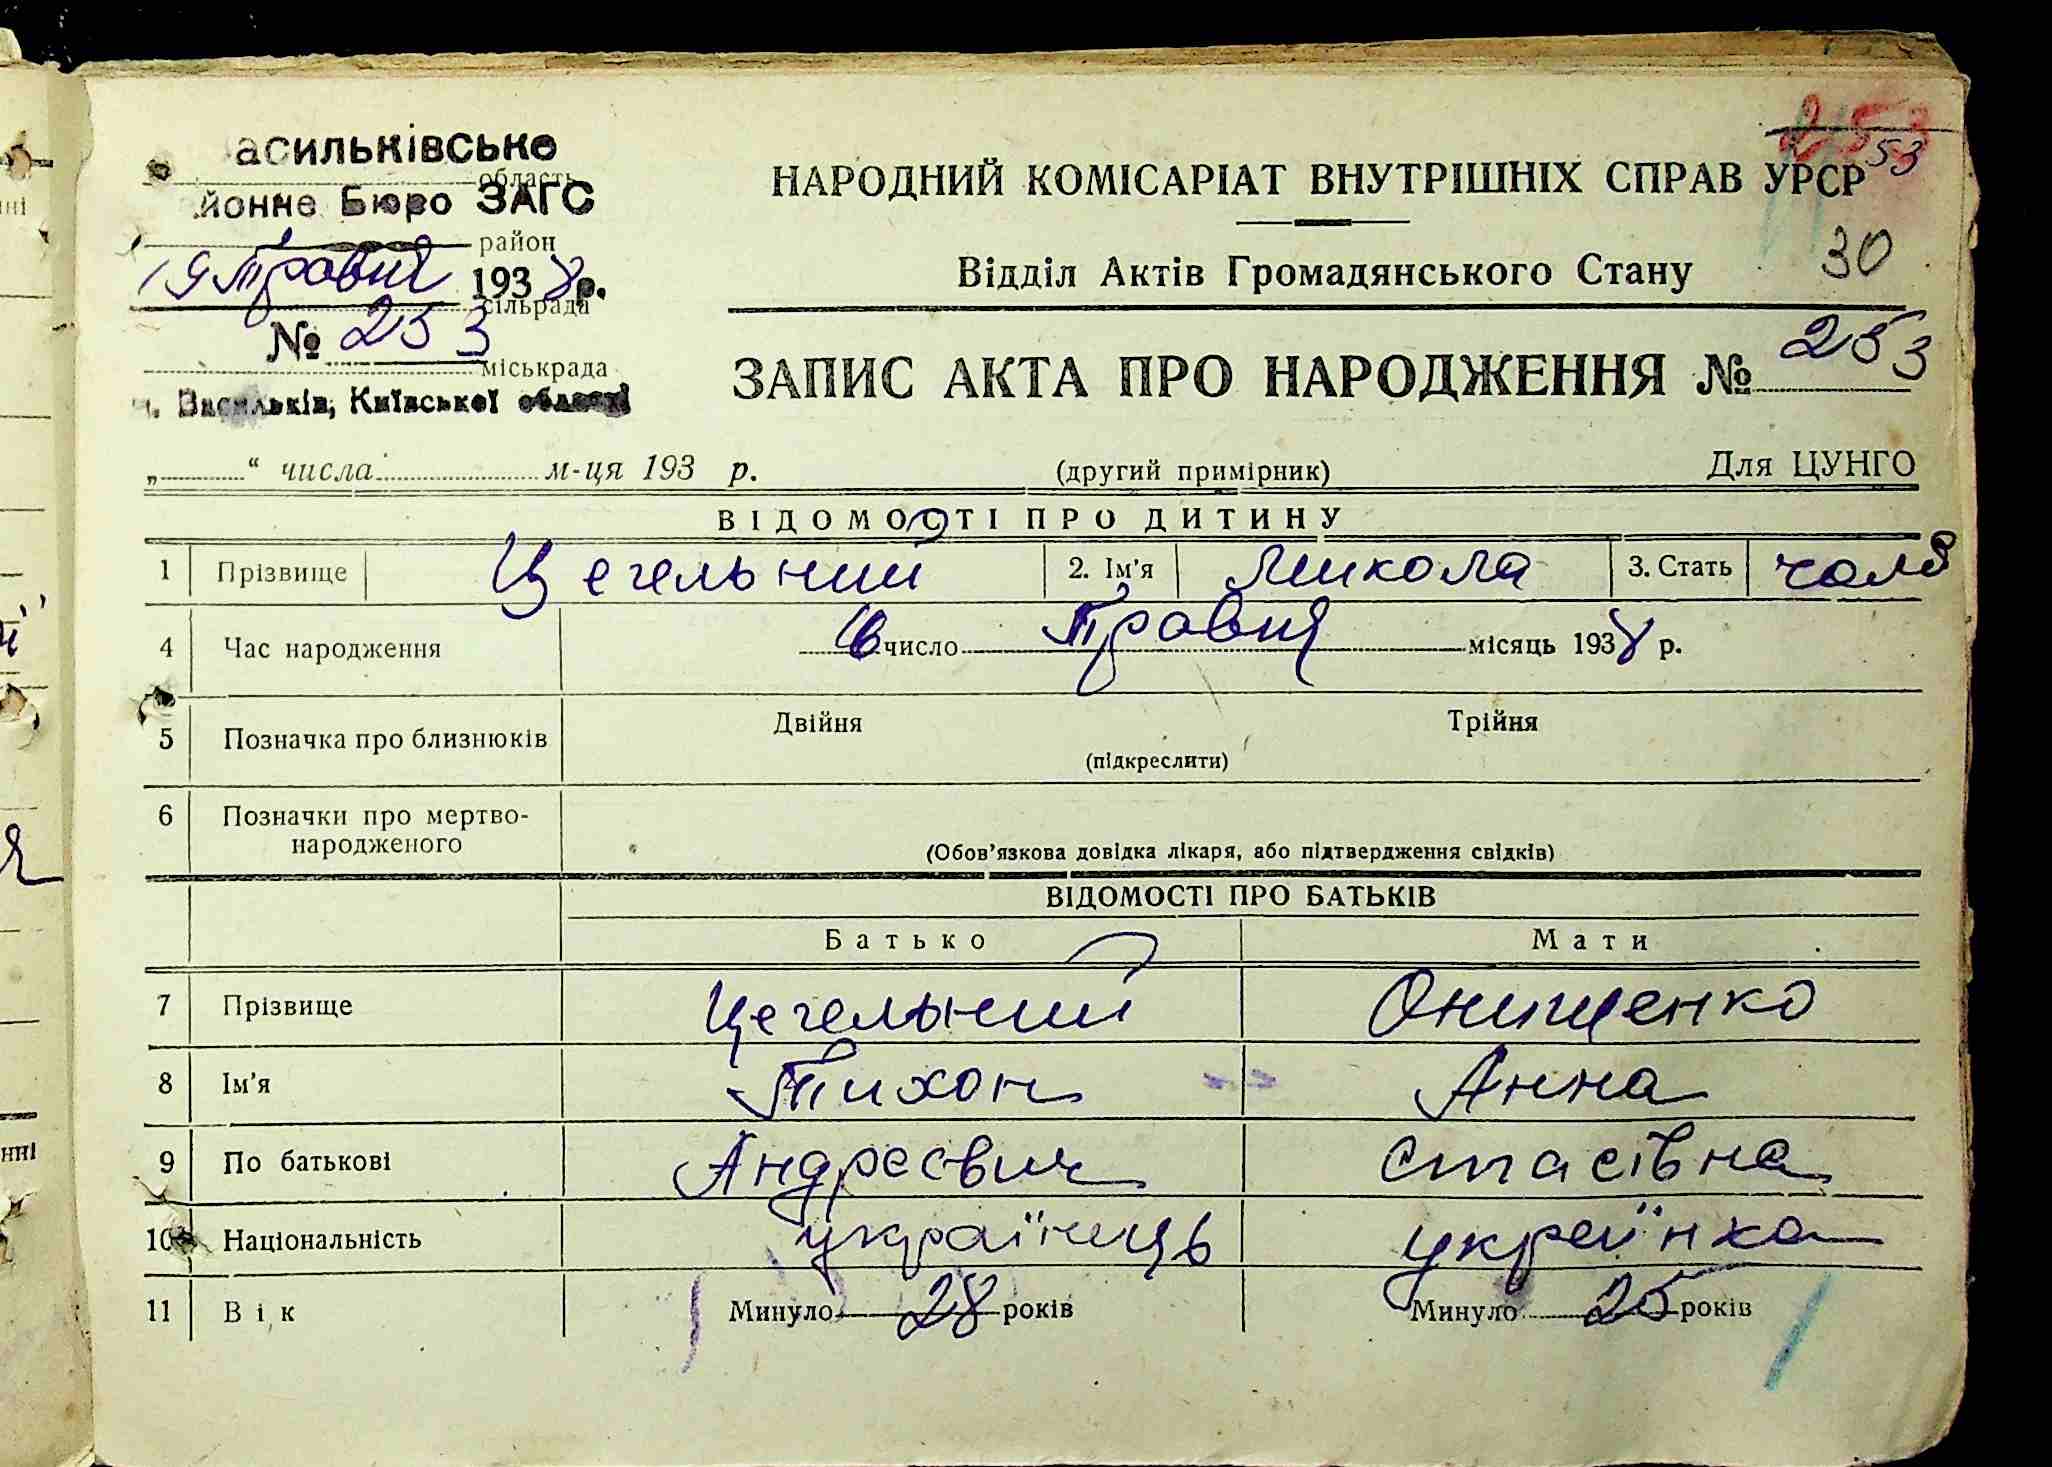 асильківське
область
йонне Бюро ЗАГС
район
19 травня 1938 р.
сільрада
№ 253
міськрада
м. Васильків, Київської області
253
53
НАРОДНИЙ КОМІСАРІАТ ВНУТРІШНІХ СПРАВ УРСР
30
Відділ Актів Громадянського Стану
ЗАПИС АКТА ПРО НАРОДЖЕННЯ № 253
„ “ числа м-ця 193 р. (другий примірник) Для ЦУНГО
ВІДОМОСТІ ПРО ДИТИНУ
1 Прізвище Цегельний 2. Ім'я Микола 3. Стать чолв
4 Час народження число травня місяць 1938 р.
5 Позначка про близнюків Двійня Трійня
(підкреслити)
6 Позначки про мертво-
народженого
(Обов'язкова довідка лікаря, або підтвердження свідків)
ВІДОМОСТІ ПРО БАТЬКІВ
Батько Мати
7 Прізвище Цегельний Онищенко
8 Ім'я Тихон Анна
9 По батькові Андреєвич Стасівна
10 Національність українець українка
11 Вік Минуло 28 років Минуло 25 років
нні